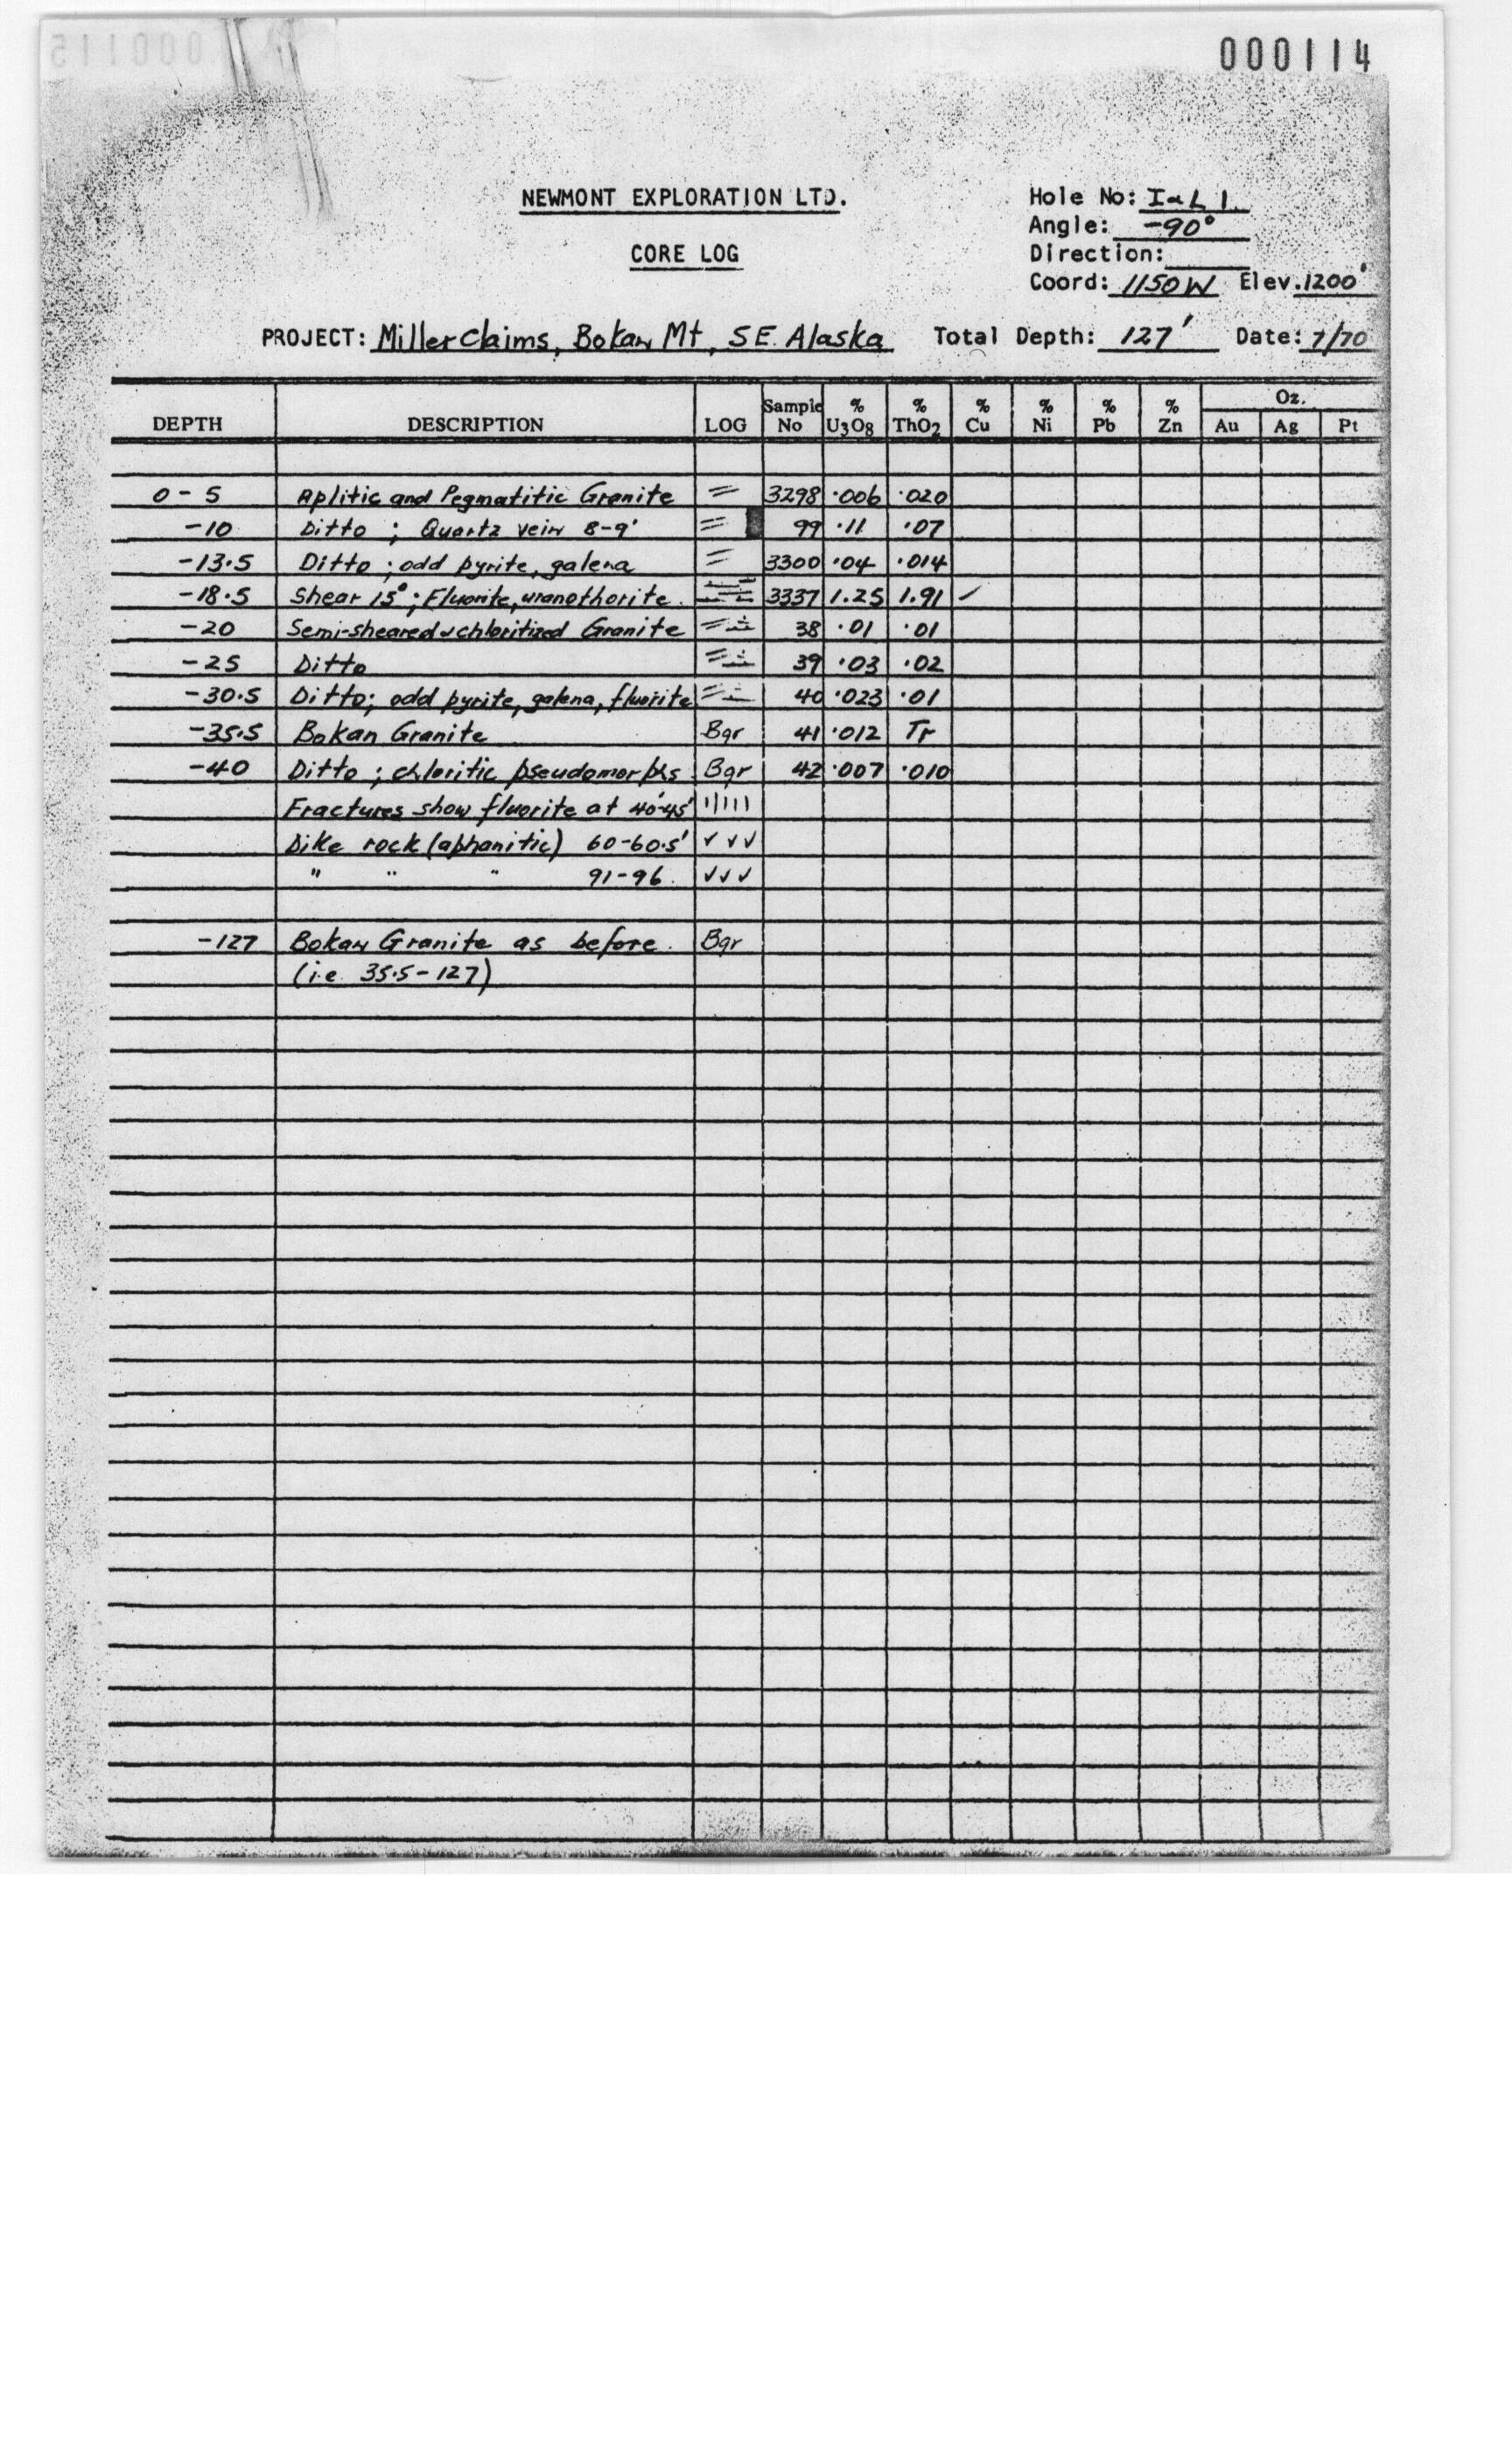 000114
000115
NEWMONT EXPLORATION LTD.
CORE LOG
Hole No: I-L 1
Angle: -90°
Direction:
Coord: 1150W Elev. 1200'
PROJECT: Miller Claims, Bokan Mt, SE. Alaska Total Depth: 127' Date: 7/70
DEPTH DESCRIPTION LOG Sample No % U3O8 % ThO2 % Cu % Ni % Pb % Zn Oz. Au Ag Pt
0 - 5 Aplitic and Pegmatitic Granite 3298 ·006 ·020
-10 Ditto ; Quartz vein 8-9' 99 ·11 ·07
-13·5 Ditto ; odd pyrite, galena 3300 ·04 ·014
-18·5 Shear 15° ; Fluorite, uranothorite. 3337 1.25 1.91 ✓
-20 Semi-sheared & chloritized Granite 38 ·01 ·01
-25 Ditto 39 ·03 ·02
-30·5 Ditto; odd pyrite, galena, fluorite 40 ·023 ·01
-35·5 Bokan Granite Bgr 41 ·012 Tr
-40 Ditto ; chloritic pseudomorphs Bgr 42 ·007 ·010
Fractures show fluorite at 40'-45'
Dike rock (aphanitic) 60-60·5' ✓ ✓ ✓
" " " 91-96. ✓ ✓ ✓
-127 Bokan Granite as before. Bgr
(i.e. 35·5-127)